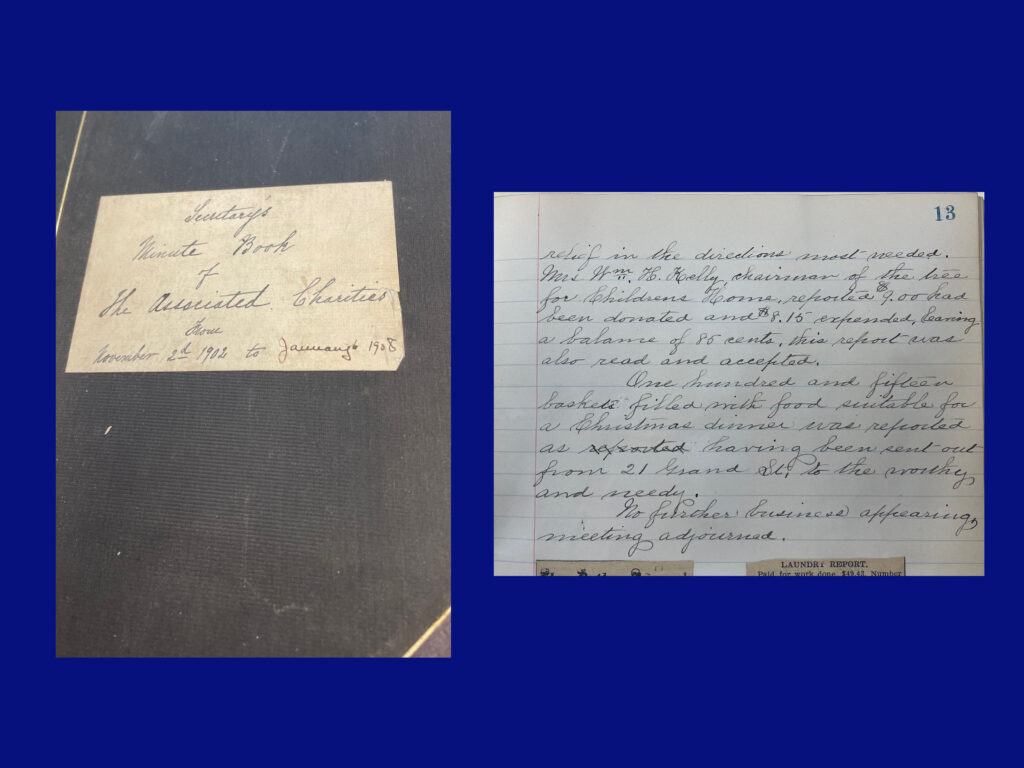 Secretary's
Minute Book
of
The Associated Charities
From
November 2d 1902 to January 1908
13
relief in the directions most needed.
Mrs Wm. H. Kelly, chairman of the tree
for Childrens Home, reported $9.00 had
been donated and $8.15 expended, leaving
a balance of 85 cents, this report was
also read and accepted.
One hundred and fifteen
baskets filled with food suitable for
a Christmas dinner was reported
as reported having been sent out
from 21 Grand St., to the worthy
and needy.
No further business appearing,
meeting adjourned.
LAUNDRY REPORT.
Paid for work done, $49.43. Number